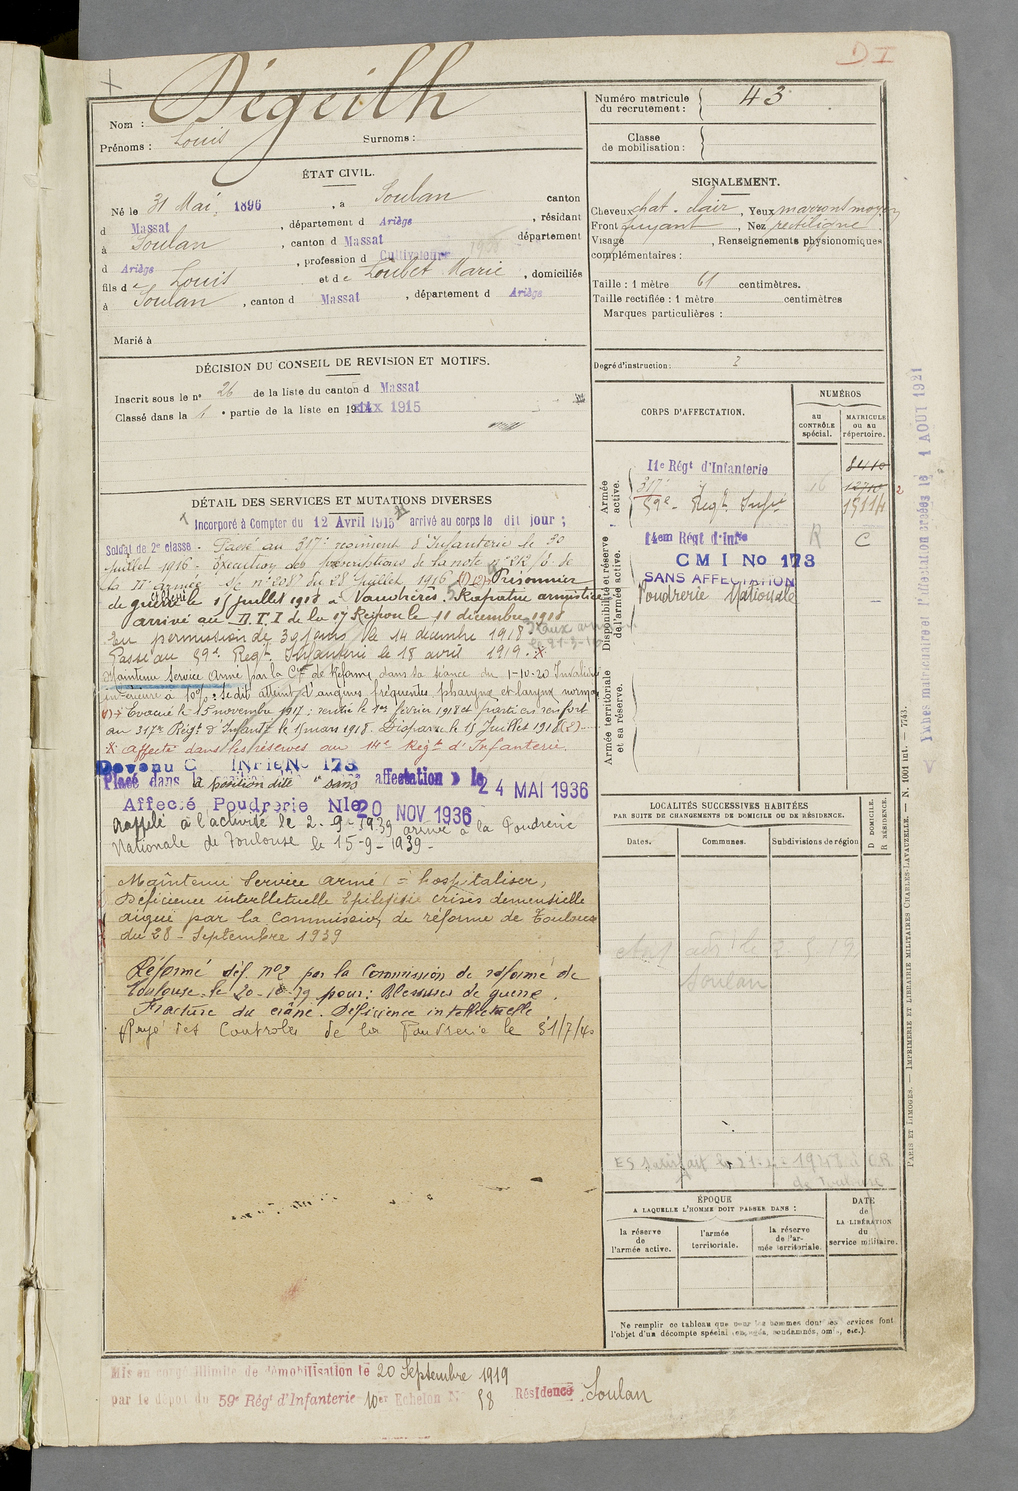 D I
Dégeilh
Nom :
Prénoms : Louis Surnoms :
Numéro matricule
du recrutement : 43
Classe
de mobilisation :
ÉTAT CIVIL.
Né le 31 Mai 1896, à Soulan canton
d Massat, département d Ariège, résidant
à Soulan, canton d Massat département
d Ariège, profession d Cultivateur
fils de Louis et de Loubet Marie, domiciliés
à Soulan, canton d Massat, département d Ariège
Marié à
SIGNALEMENT.
Cheveux chat. clair, Yeux marrons moyen
Front fuyant, Nez rectiligne.
Visage , Renseignements physionomiques
complémentaires :
Taille : 1 mètre 61 centimètres.
Taille rectifiée : 1 mètre centimètres
Marques particulières :
Degré d'instruction : 2
DÉCISION DU CONSEIL DE REVISION ET MOTIFS.
Inscrit sous le n° 26 de la liste du canton d Massat
Classé dans la 1 e partie de la liste en 1915
CORPS D'AFFECTATION.
NUMÉROS
au
CONTRÔLE
spécial.
MATRICULE
ou au
répertoire.
Armée
active.
11e Régt d'Infanterie
317
59e Regt Infie 15114
Disponibilité et réserve
de l'armée active.
14em Régt d'Infie R C
CMI No 173
SANS AFFECTATION
Poudrerie Nationale
Armée territoriale
et sa réserve.
DÉTAIL DES SERVICES ET MUTATIONS DIVERSES
Incorporé à Compter du 12 Avril 1915 arrivé au corps le dit jour ;
Soldat de 2e classe. Passé au 317e régiment d'Infanterie le 30
juillet 1916. Exécution des prescriptions de la note n° 212/6 de
la IIe armée du 28 juillet 1916. Prisonnier
de guerre le 15 juillet 1918 à Vaudrières. Rapatrié armistice
arrivé au D.T.I de la 17 Région le 11 décembre 1918
En permission de 39 jours le 14 décembre 1918
Passé au 59e Regt Infanterie le 18 avril 1919.
Maintenu Service Armé par la Con de Réforme dans sa séance du 1-10-20 Invalidité
inférieure à 10% : se dit atteint d'angines fréquentes, pharynx et larynx normaux
Evacué le 15 novembre 1917 ; rentré le 1er février 1918 et parti en renfort
au 317e Régt d'Infantie le 15 mars 1918. Disparu le 15 juillet 1918 (2)
X affecté dans les réserves au 14e Régt d'Infanterie.
Devenu C INFIE No 173
Placé dans la position dite "sans affectation" le 24 MAI 1936
Affecté Poudrerie Nle 20 NOV 1936
Rappelé à l'activité le 2-9-1939 arrivé à la Poudrerie
Nationale de Toulouse le 15-9-1939-
Maintenu Service armé = hospitaliser,
Déficience intellectuelle Epilepsie crises démentielle
aiguë par la Commission de réforme de Toulouse
du 28 - Septembre 1939
Réformé déf. n°2 par la Commission de réforme de
Toulouse le 20-10-39 pour : Blessures de guerre.
Fracture du crâne. Déficience intellectuelle
Rayé des Controles de la Poudrerie le 31/7/40
LOCALITÉS SUCCESSIVES HABITÉES
PAR SUITE DE CHANGEMENTS DE DOMICILE OU DE RÉSIDENCE.
Dates. Communes. Subdivisions de région
D DOMICILE.
R RÉSIDENCE.
Soulan
ÉPOQUE
A LAQUELLE L'HOMME DOIT PASSER DANS :
la réserve
de
l'armée active.
l'armée
territoriale.
la réserve
de l'ar-
mée territoriale.
DATE
de
LA LIBÉRATION
du
service militaire.
Ne remplir ce tableau que pour les hommes dont les services font
l'objet d'un décompte spécial (engagés, condamnés, omis, etc.).
Mis en congé illimité de démobilisation le 20 Septembre 1919
par le dépôt du 59e Régt d'Infanterie 10er Echelon N° 58 Résidence Soulan
PARIS ET LIMOGES. — IMPRIMERIE ET LIBRAIRIE MILITAIRES CHARLES-LAVAUZELLE. — N. 1001 int. — 7743.
matriculaire et l'affectation créées le 1 AOUT 1921